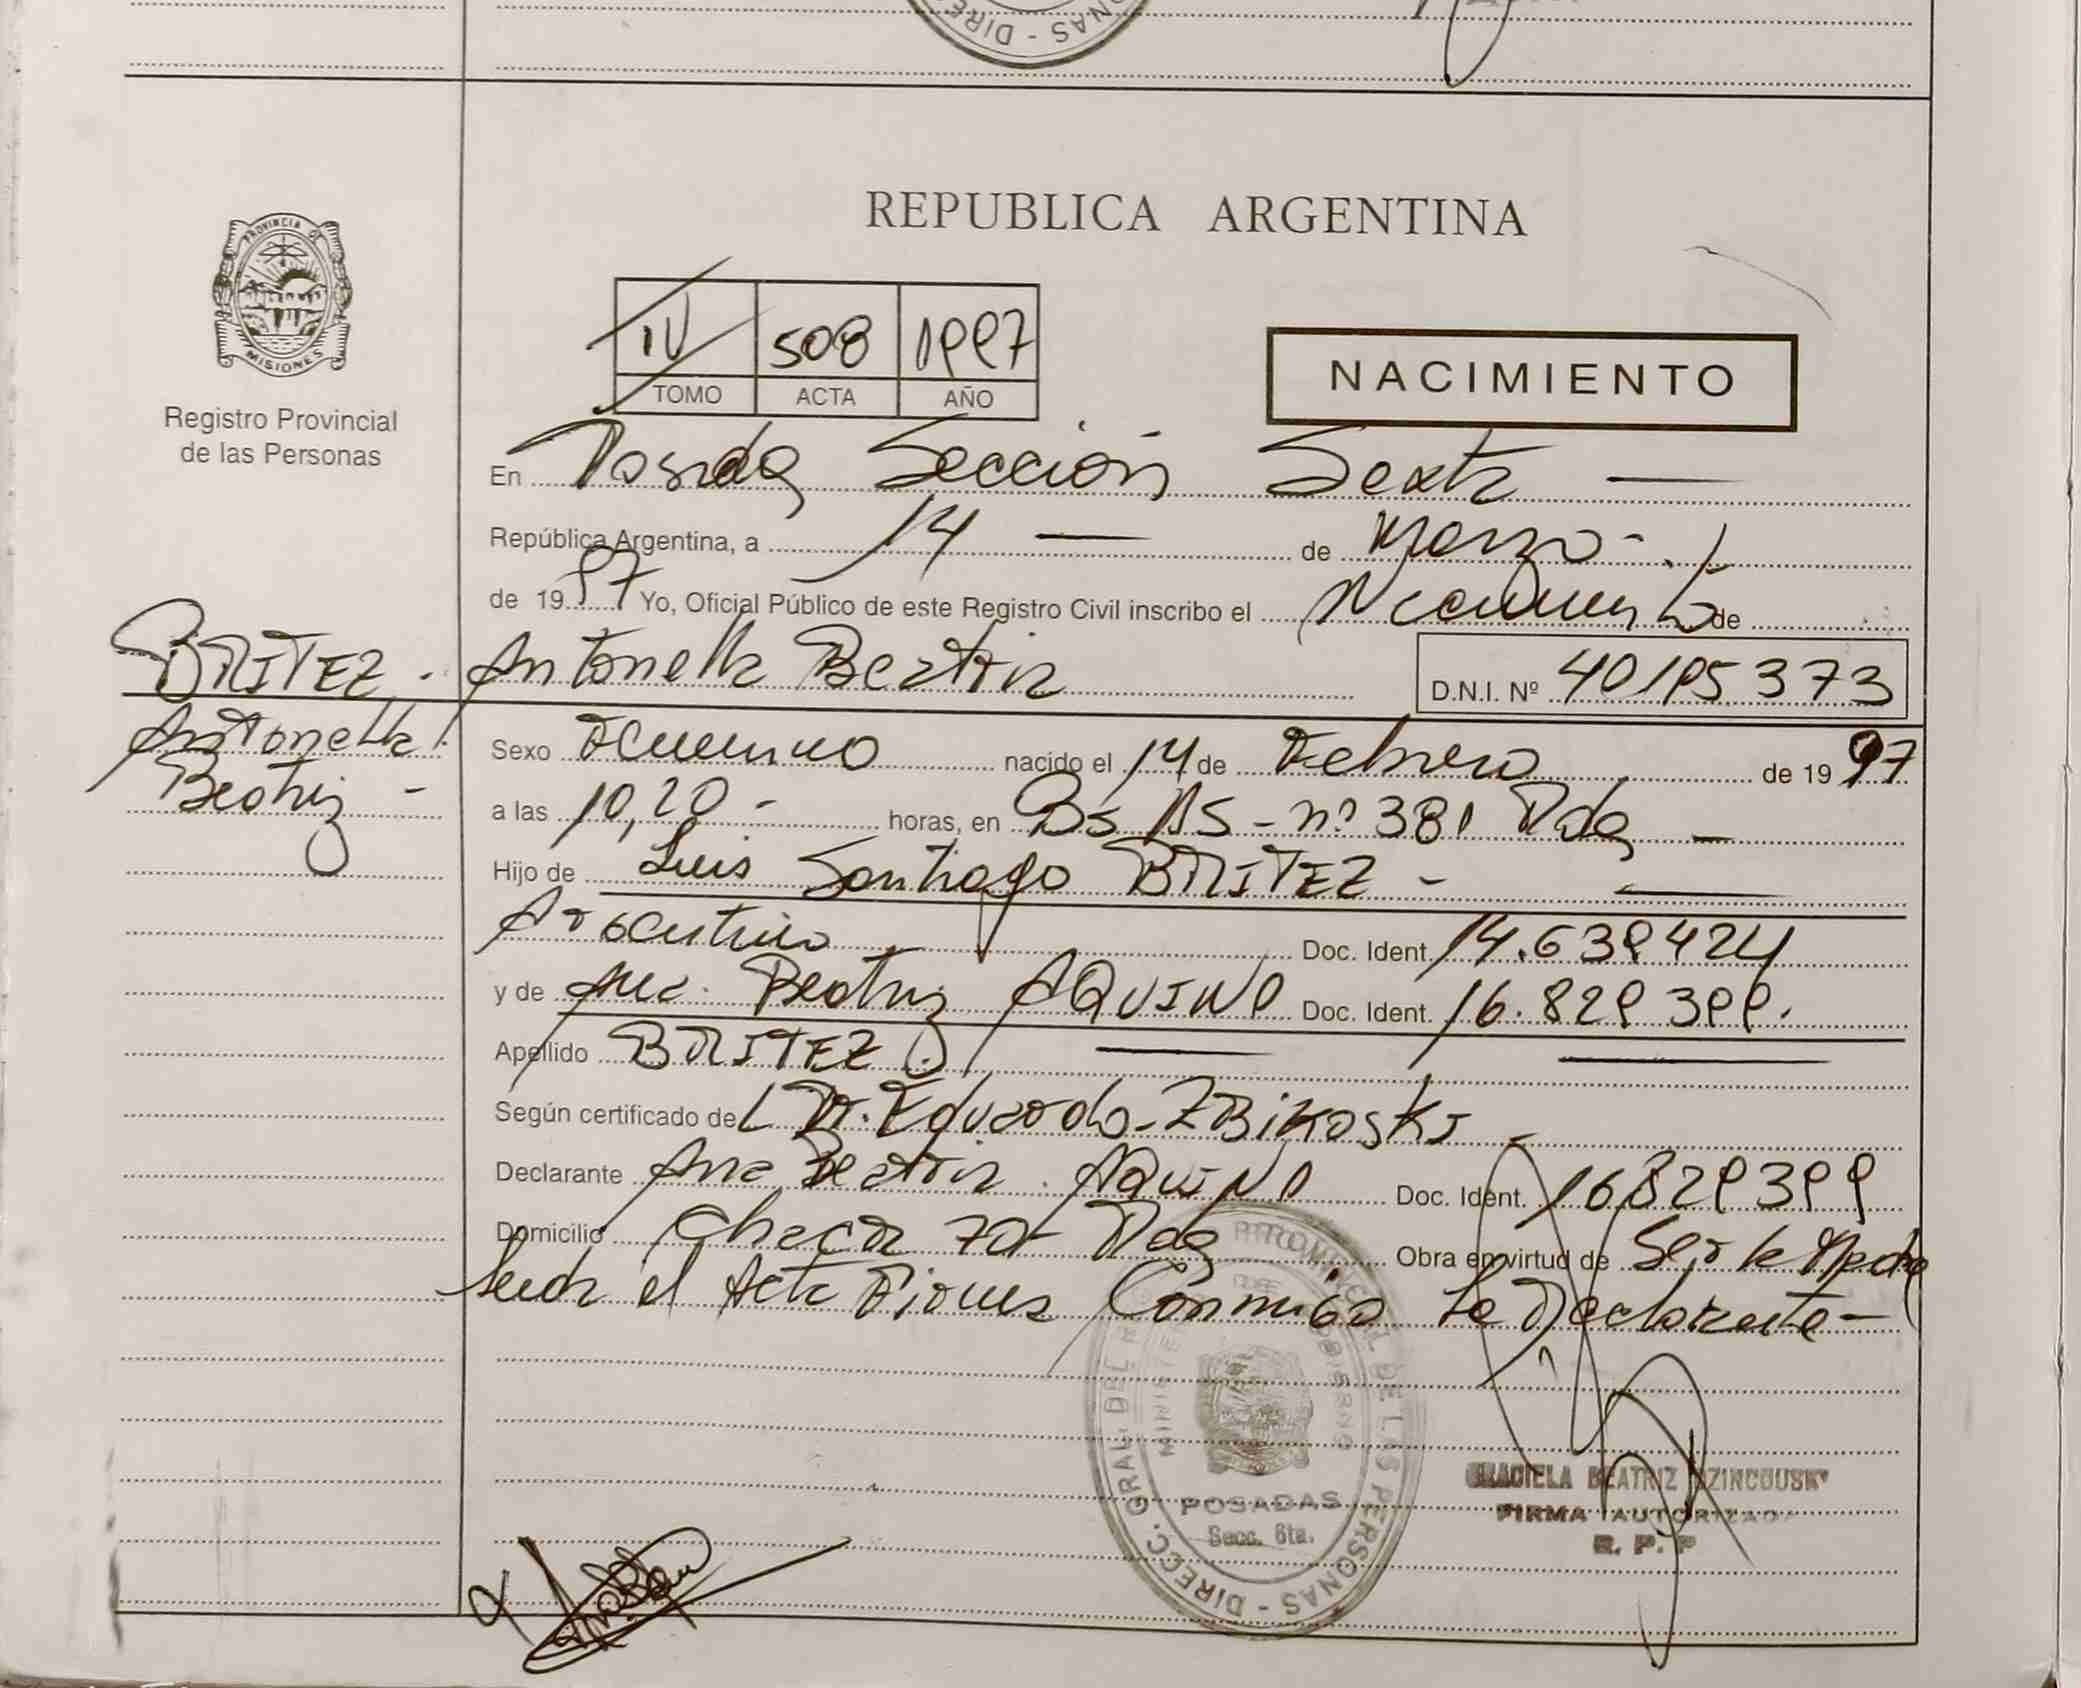 NAS - DIREC
REPUBLICA ARGENTINA
PROVINCIA DE
MISIONES
Registro Provincial
de las Personas
IV 508 1997
TOMO ACTA AÑO
NACIMIENTO
En Posadas Sección Sexta
República Argentina, a 14 de Marzo
de 1997 Yo, Oficial Público de este Registro Civil inscribo el Nacimiento de
BRITEZ. Antonella Beatriz D.N.I. Nº 40195373
Antonella
Beatriz -
Sexo Femenino nacido el 14 de Febrero de 1997
a las 10,20 - horas, en Bs As - nº 381 Pdas
Hijo de Luis Santiago BRITEZ -
Argentino Doc. Ident 14.639424
y de Ana Beatriz AQUINO Doc. Ident. 16.829399.
Apellido BRITEZ
Según certificado del Dr. Eduardo ZBiKosKi
Declarante Ana Beatriz AQUINO Doc. Ident. 16829399
Domicilio Pdas Obra en virtud de Ser la Madre
Leida el Acta Firma Conmigo La Declarante -
DIRECC. GRAL. DEL PROVINCIAL DE LAS PERSONAS
POSADAS
Secc. 6ta.
GRACIELA BEATRIZ
FIRMA AUTORIZADA
R. P. P